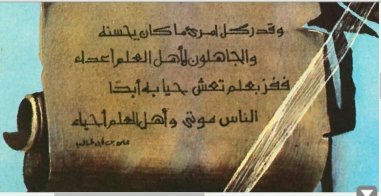 وقدر كل امرئ ما كان يحسنه
والجاهلون لأهل العلم أعداء
ففز بعلم تعش حيا به أبدًا
الناس موتى وأهل العلم أحياء
علي بن أبي طالب